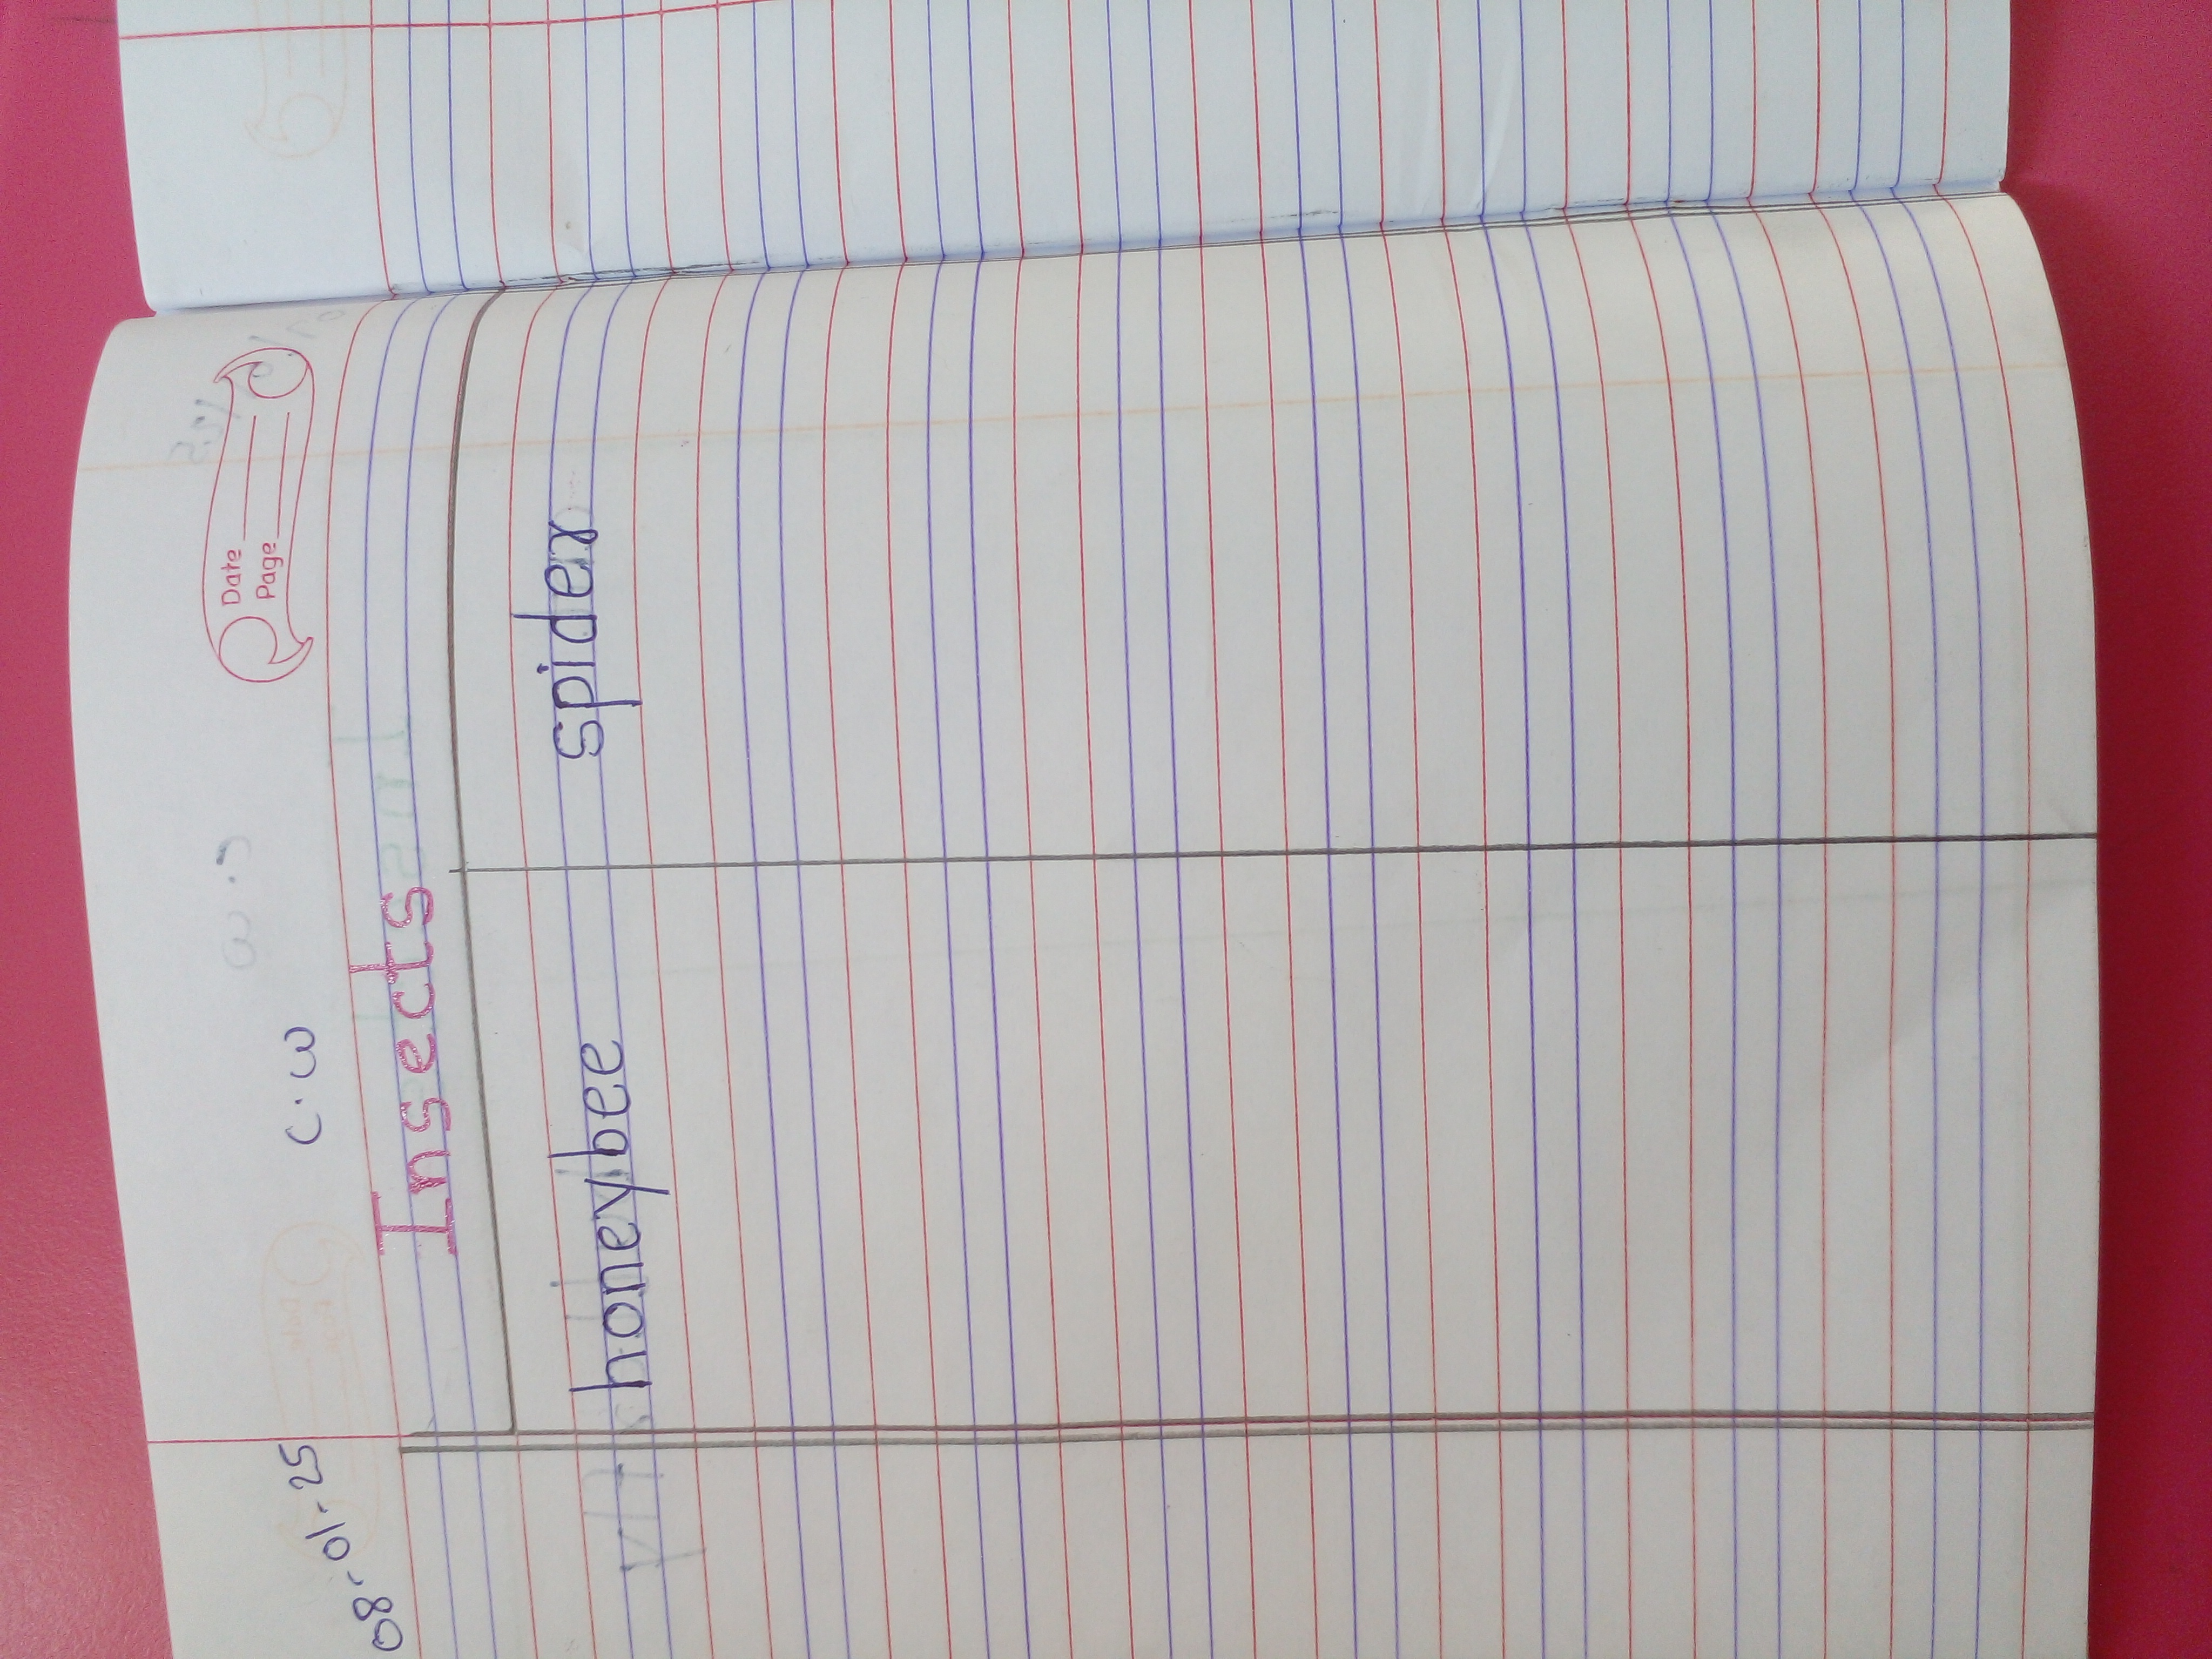 Date
Page
08-01-25 C.W
Insects
honeybee spider